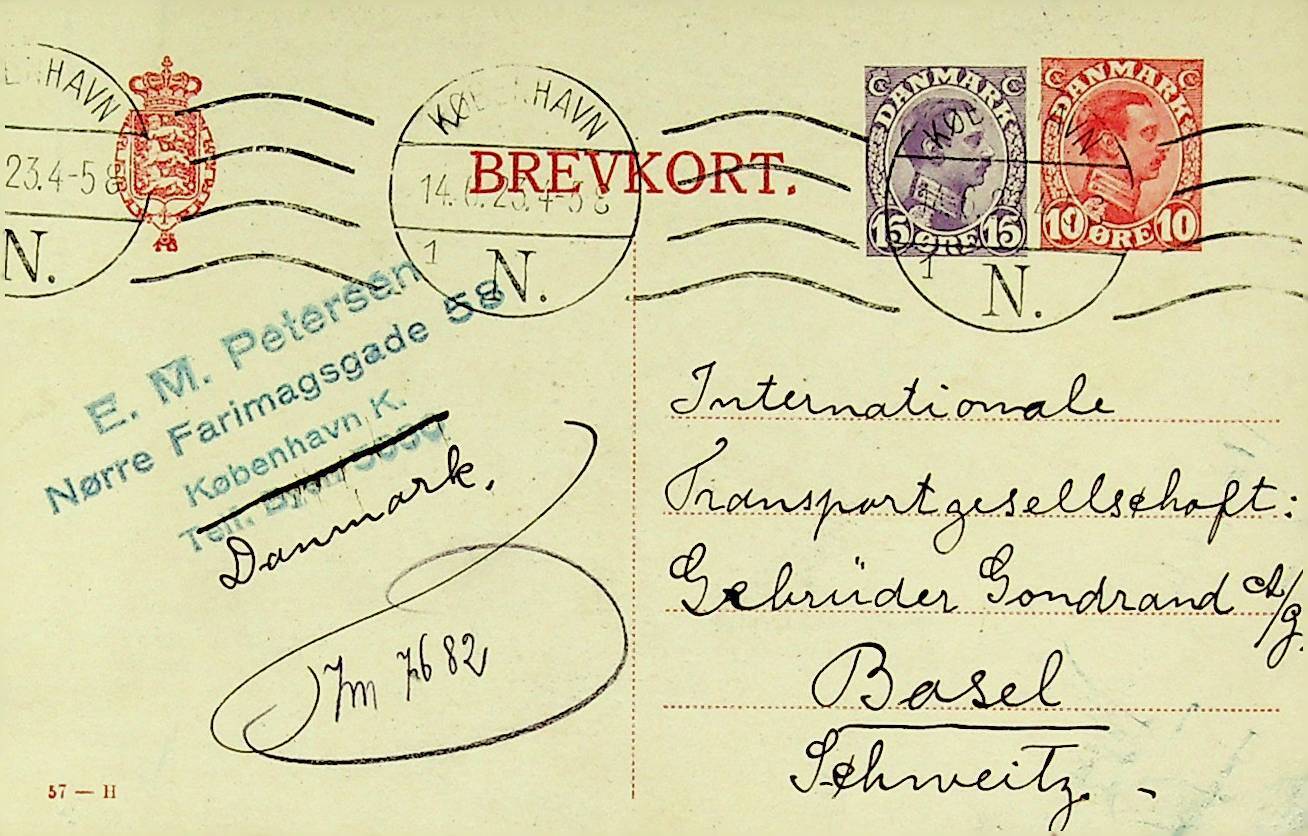 KØBENHAVN
23.4-5 8
N.
KØBENHAVN
14. 6. 23. 4-5 8
1
N.
BREVKORT.
DANMARK
15 ØRE 15
DANMARK
10 ØRE 10
1
N.
E. M. Petersen
Nørre Farimagsgade 58
København, K.
Telf.
Danmark.
7682
57 — H
Internationale
Transportgesellschaft:
Gebrüder Gondrand A/g.
Basel
Schweitz. -